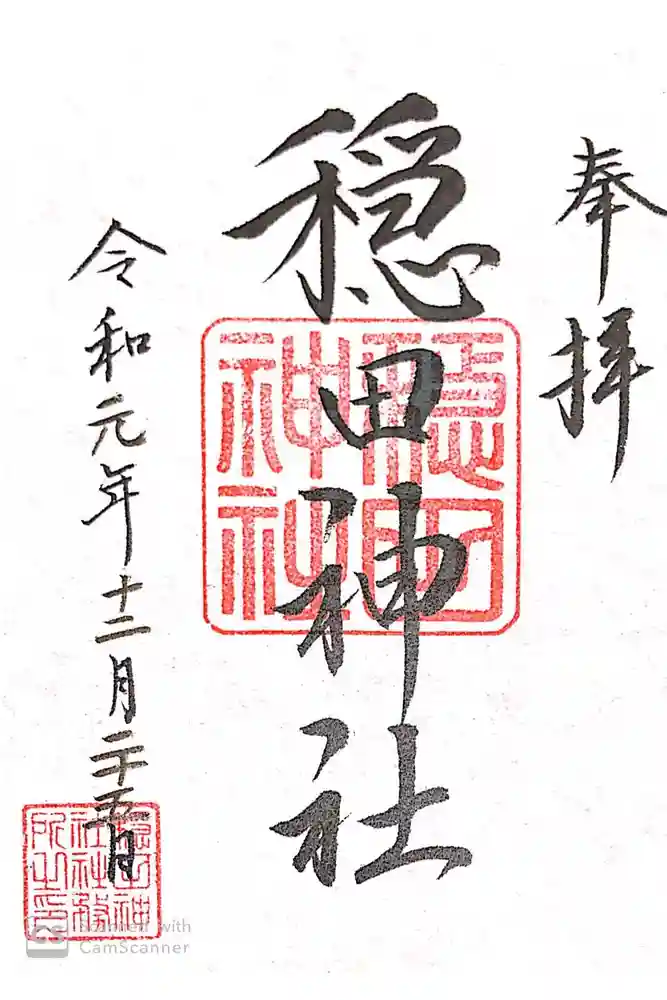 奉拝
穏田神社
令和元年十二月二十五日
穏田神社
穏田神社社務所之印
CS Scanned with
CamScanner